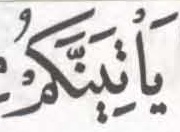 يَأْتِيَنَّكُمْ